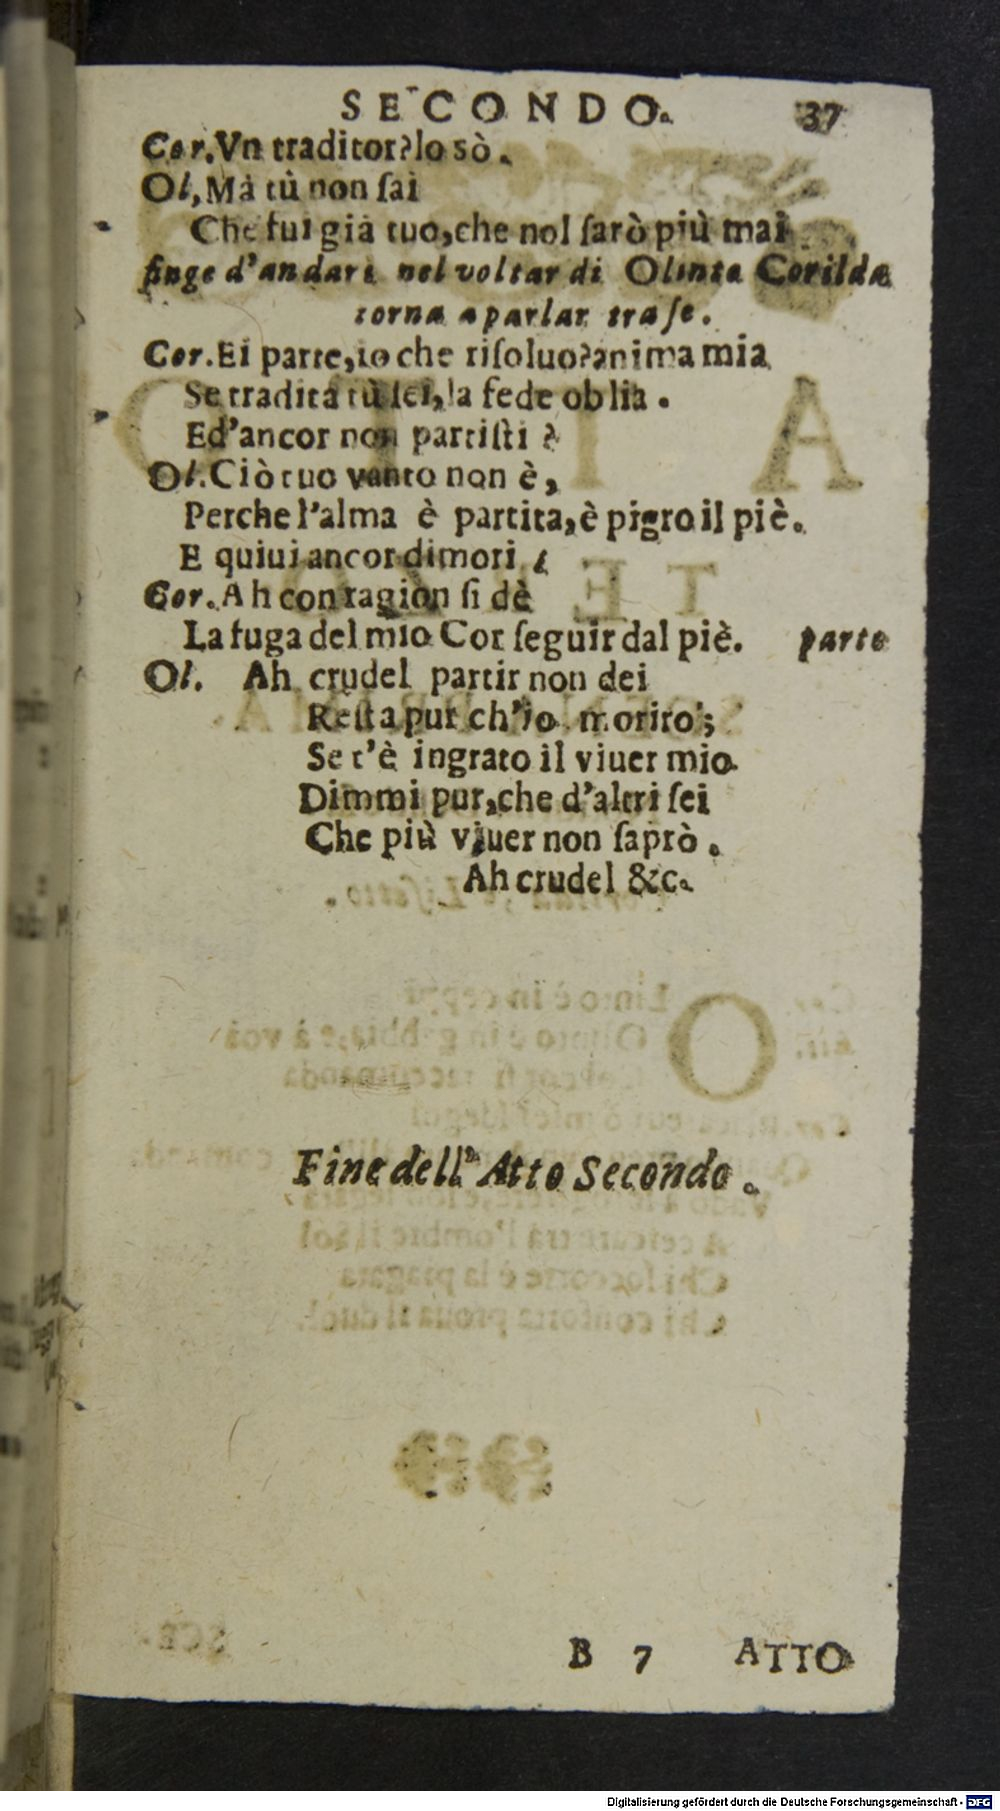 SECONDO. 37
Cor. Vn traditor? lo sò.
Ol, Mà tù non ſai
Che fui già tuo, che nol ſarò più mai
finge d'andare nel voltar di Olinta Corilda
torna a parlar tra ſe.
Cor. Ei parte, io che riſoluo? anima mia
Se tradita tù ſei, la fede oblia.
Ed'ancor non partiſti?
Ol. Ciò tuo vanto non è,
Perche l'alma è partita, è pigro il piè.
E quiui ancor dimori?
Cor. Ah con ragion ſi dè
La fuga del mio Cor ſeguir dal piè. parte
Ol. Ah crudel partir non dei
Reſta pur ch'io moriro';
Se t'è ingrato il viuer mio
Dimmi pur, che d'altri ſei
Che più viuer non ſaprò.
Ah crudel &c.
Fine dell' Atto Secondo.
B 7 ATTO
Digitalisierung gefördert durch die Deutsche Forschungsgemeinschaft - DFG